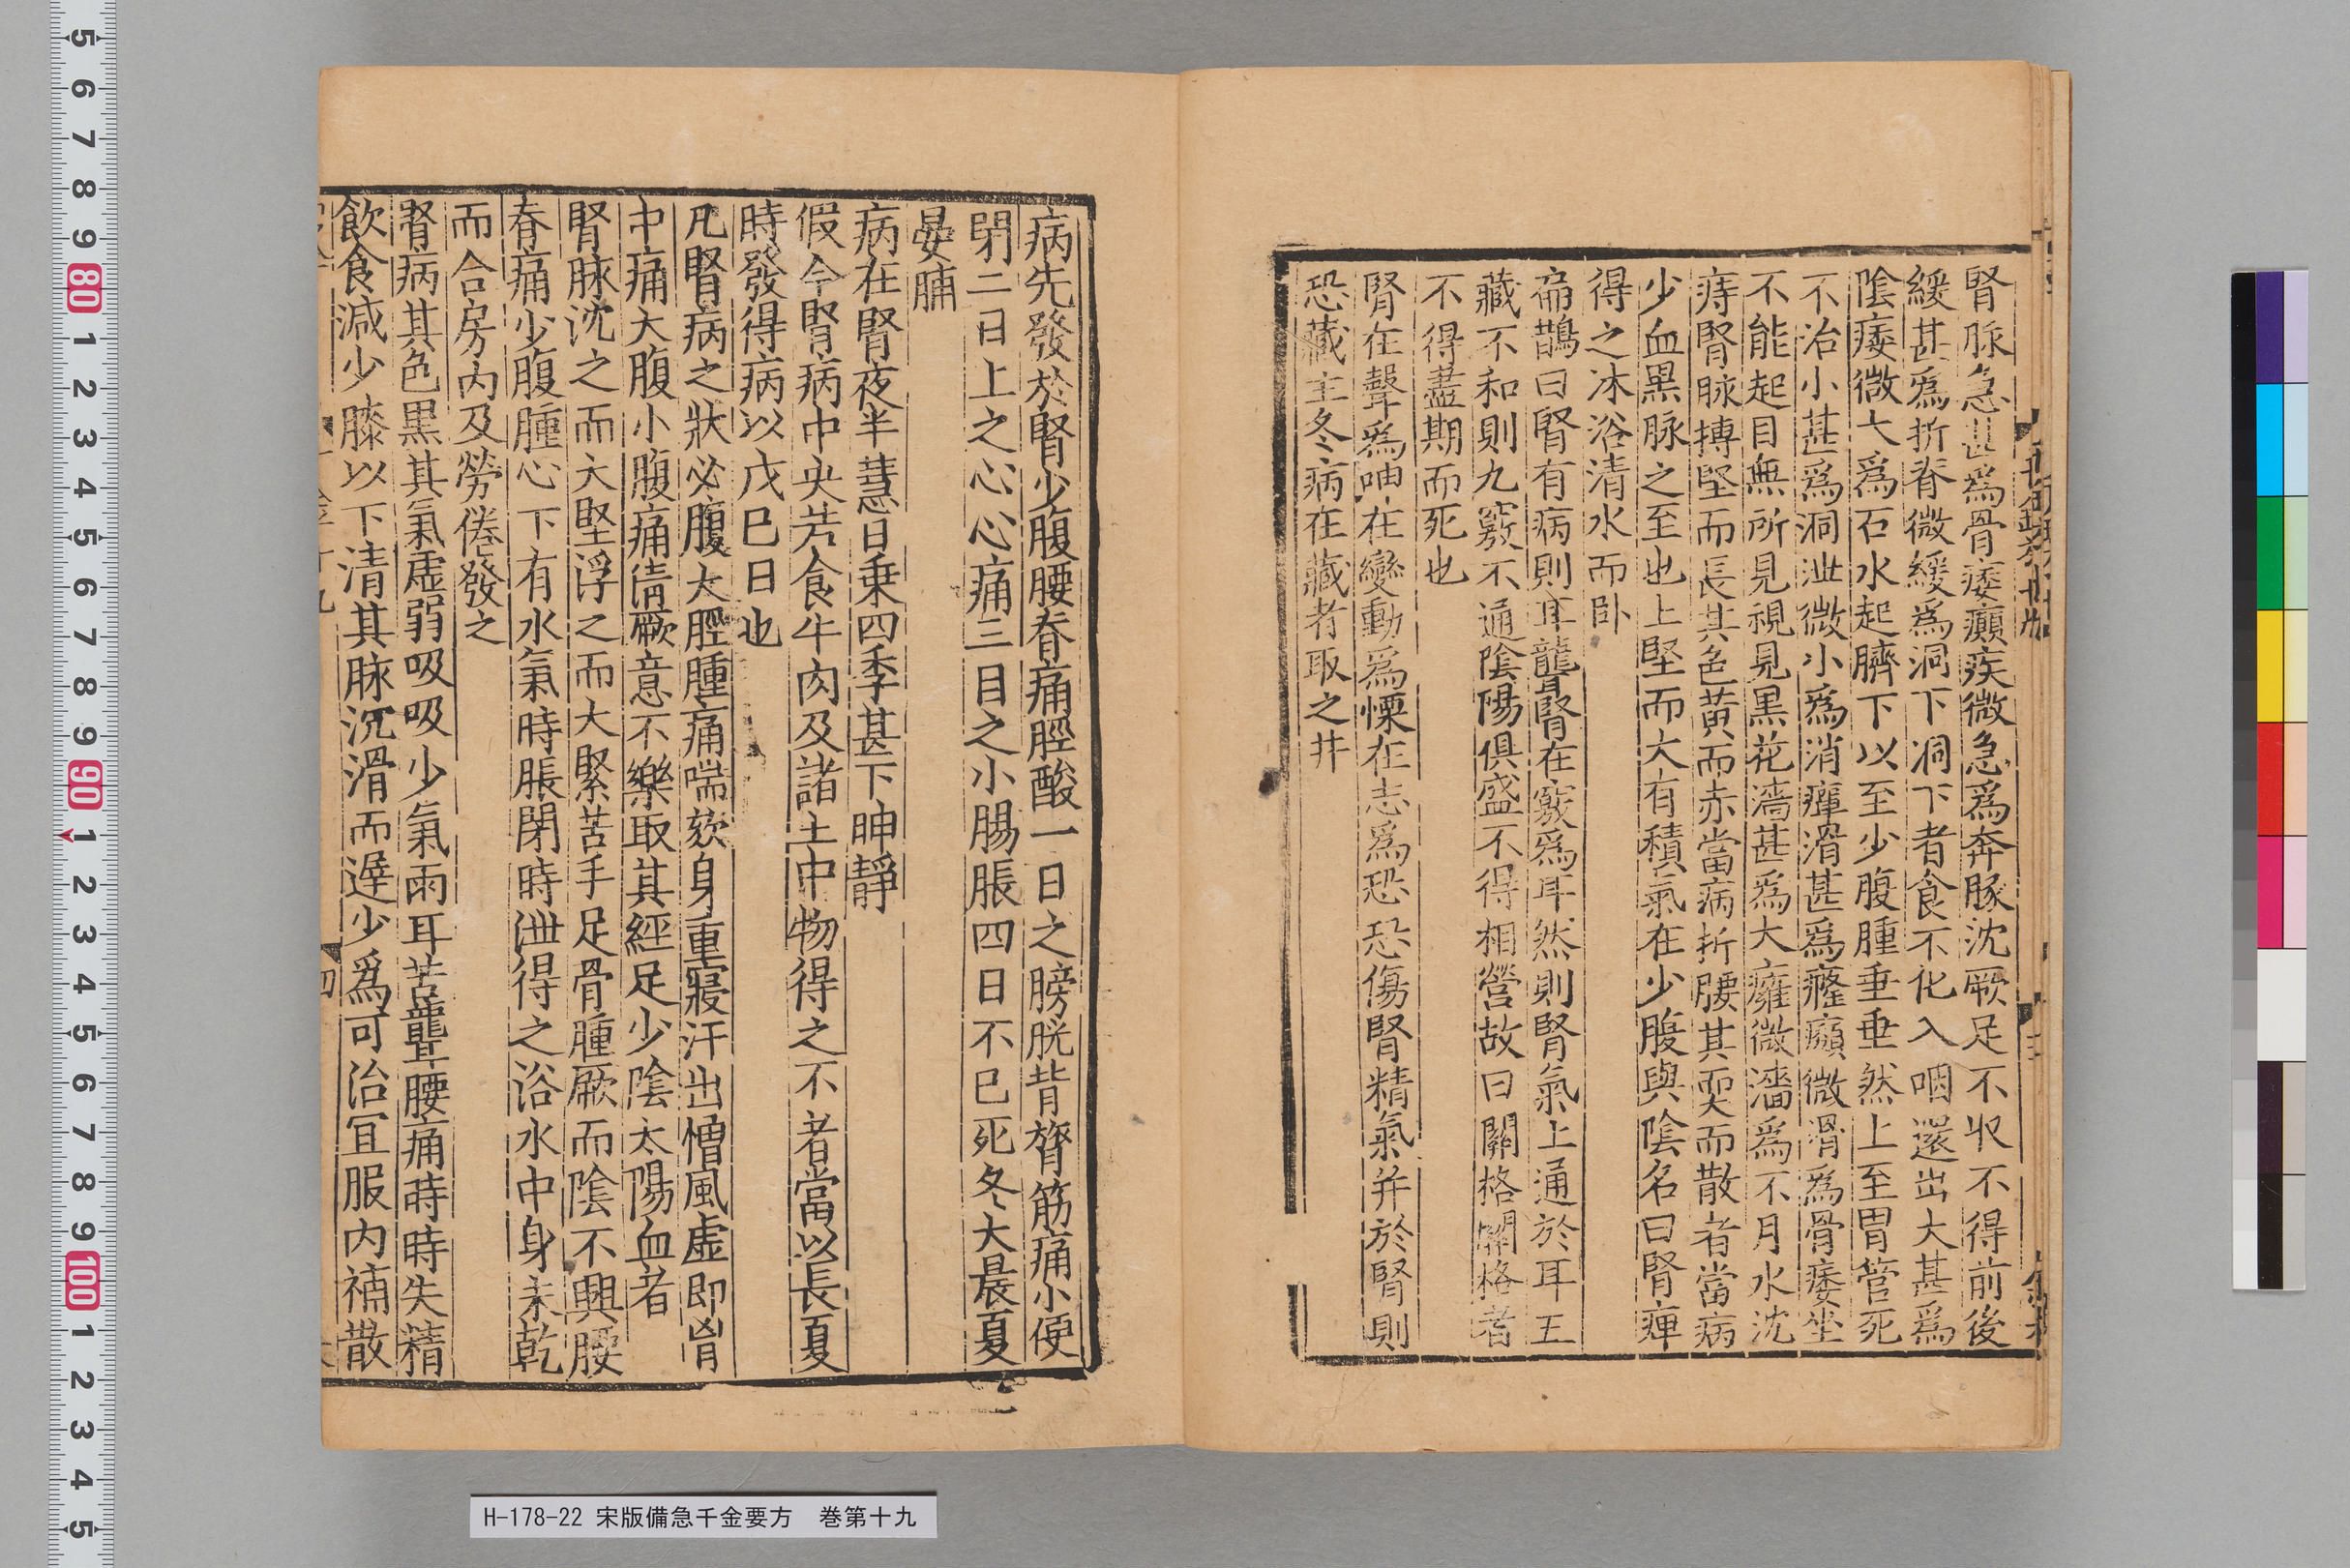 腎脉急甚爲骨痿癲疾微急爲奔豚沈厥足不收不得前後
緩甚爲折脊微緩爲洞下洞下者食不化入咽還出大甚爲
陰痿微大爲石水起臍下以至少腹腫垂垂然上至胃管死
不治小甚爲洞泄微小爲消癉滑甚爲癃㿗微滑爲骨痿坐
不能起目無所見視見黒花濇甚爲大癰微濇爲不月水沈
痔腎脉搏堅而長其色黄而赤當病折腰其耎而散者當病
少血黒脉之至也上堅而大有積氣在少腹與陰名曰腎痺
得之沐浴清水而卧
扁鵲曰腎有病則耳聾腎在竅爲耳然則腎氣上通於耳五
藏不和則九竅不通陰陽俱盛不得相營故曰關格關格者
不得盡期而死也
腎在聲爲呻在變動爲慄在志爲恐恐傷腎精氣并於腎則
恐藏主冬病在藏者取之井
病先發於腎少腹腰脊痛脛酸一日之膀胱背膂筋痛小便
閉二日上之心心痛三日之小腸脹四日不已死冬大晨夏
晏晡
病在腎夜半慧日乗四季甚下晡靜
假令腎病中央若食牛肉及諸土中物得之不者當以長夏
時發得病以戊巳日也
凡腎病之狀必腹大脛腫痛喘欬身重寢汗出憎風虚即胷
中痛大腹小腹痛清厥意不樂取其經足少陰太陽血者
腎脉沈之而大堅浮之而大緊苦手足骨腫厥而陰不興腰
脊痛少腹腫心下有水氣時脹閉時泄得之浴水中身未乾
而合房内及勞倦發之
腎病其色黒其氣虚弱吸吸少氣兩耳苦聾腰痛時時失精
飲食減少膝以下清其脉沉滑而遲少爲可治宜服内補散
H-178-22 宋版備急千金要方 巻第十九
5 6 7 8 9 80 1 2 3 4 5 6 7 8 9 90 1 2 3 4 5 6 7 8 9 100 1 2 3 4 5